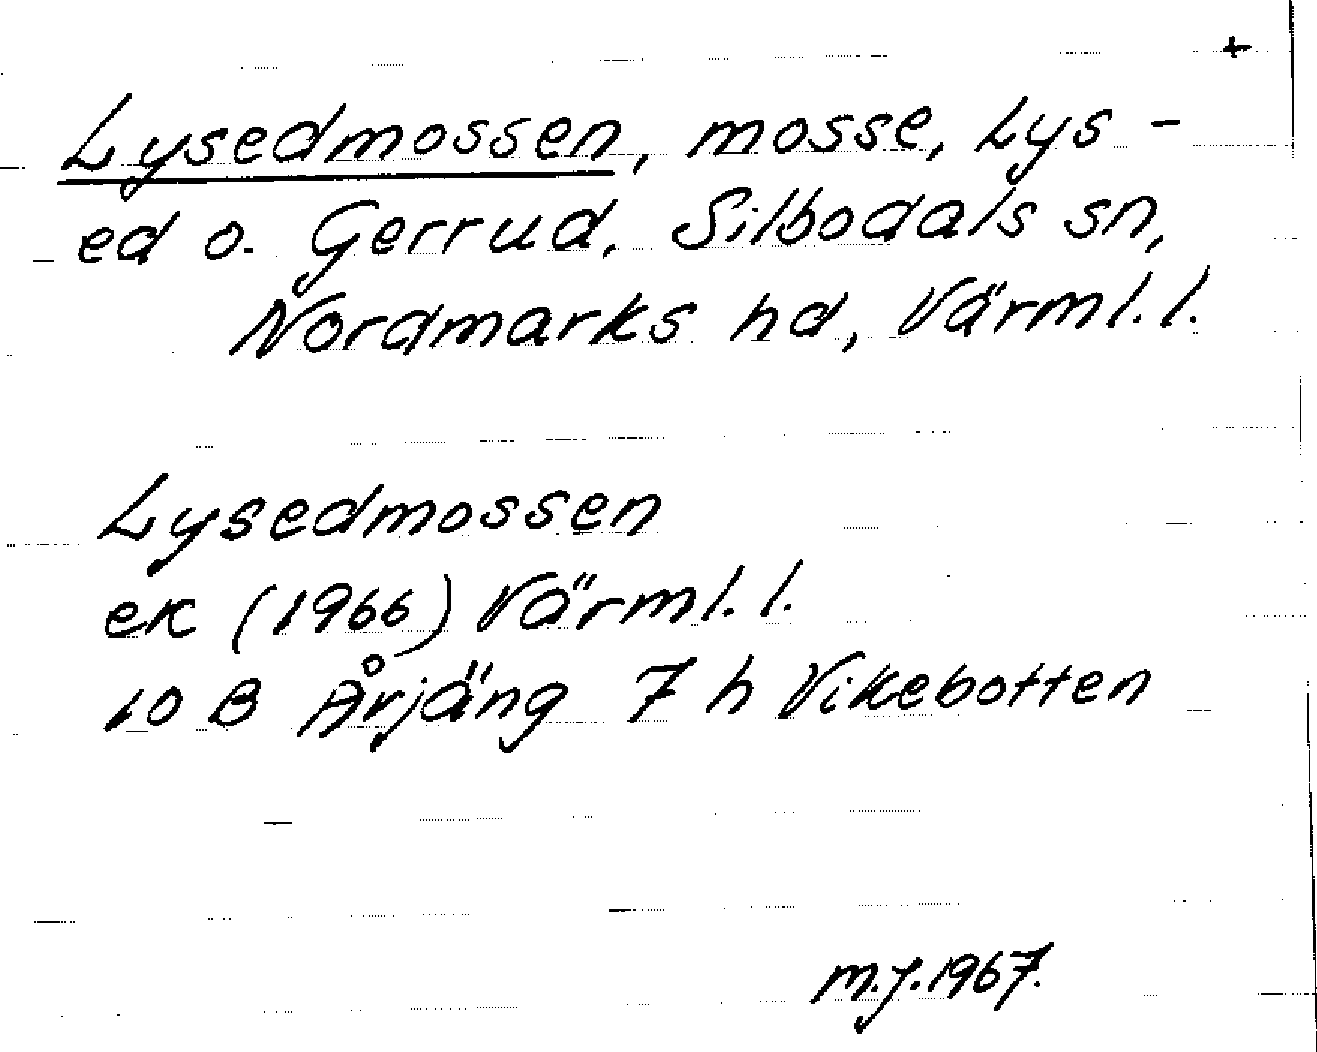 +
Lysedmossen, mosse, Lys-
ed o. Gerrud, Silbodals sn,
Nordmarks hd, Värml. l.
Lysedmossen
ek (1966) Värml. l.
10 B Årjäng 7 h Vikebotten
M.J. 1967.